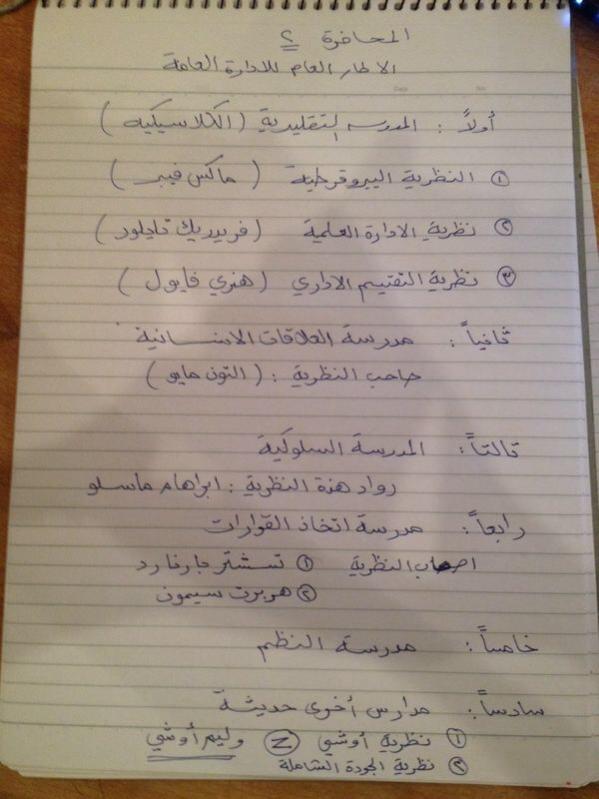 المحاضرة ٢
الاطار العام للادارة العامة
أولاً : المدرسه التقليدية (الكلاسيكيه)
١ النظرية البيروقرطية (ماكس فيبر)
٢ نظرية الادارة العلمية (فريدريك تايلور)
٣ نظرية التقسيم الاداري (هنري فايول)
ثانياً : مدرسة العلاقات الانسانية
صاحب النظرية : (التون مايو)
ثالثاً : المدرسة السلوكية
رواد هذة النظرية : ابراهام ماسلو
رابعاً : مدرسة اتخاذ القرارات
اصحاب النظرية ١ تسشتر بارنارد
٢ هربرت سيمون
خامساً : مدرسة النظم
سادساً : مدارس أخرى حديثة
١ نظرية أوشي Z وليم أوشي
٢ نظرية الجودة الشاملة